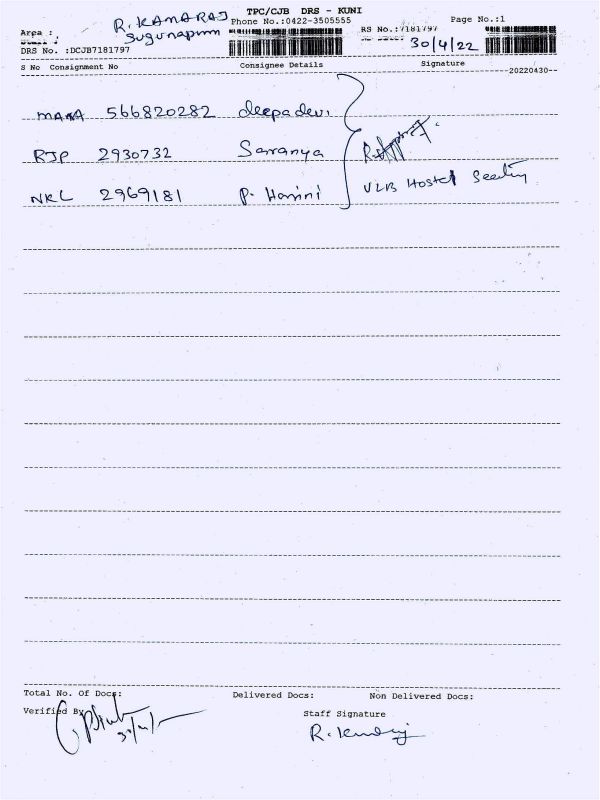 TPC/CJB DRS - KUNI
R. KAMARAJ Phone No.:0422-3505555 Page No.:1
Area : Sugunapuram RS No.:7181797
DRS No. :DCJB7181797 30/4/22
S No Consignment No Consignee Details Signature
--20220430--
MAAA 566820282 deepadevi
RJP 2930732 Saranya
NKL 2969181 P. Harini VLB Hostel
Total No. Of Docs: Delivered Docs: Non Delivered Docs:
Verified By
Staff Signature